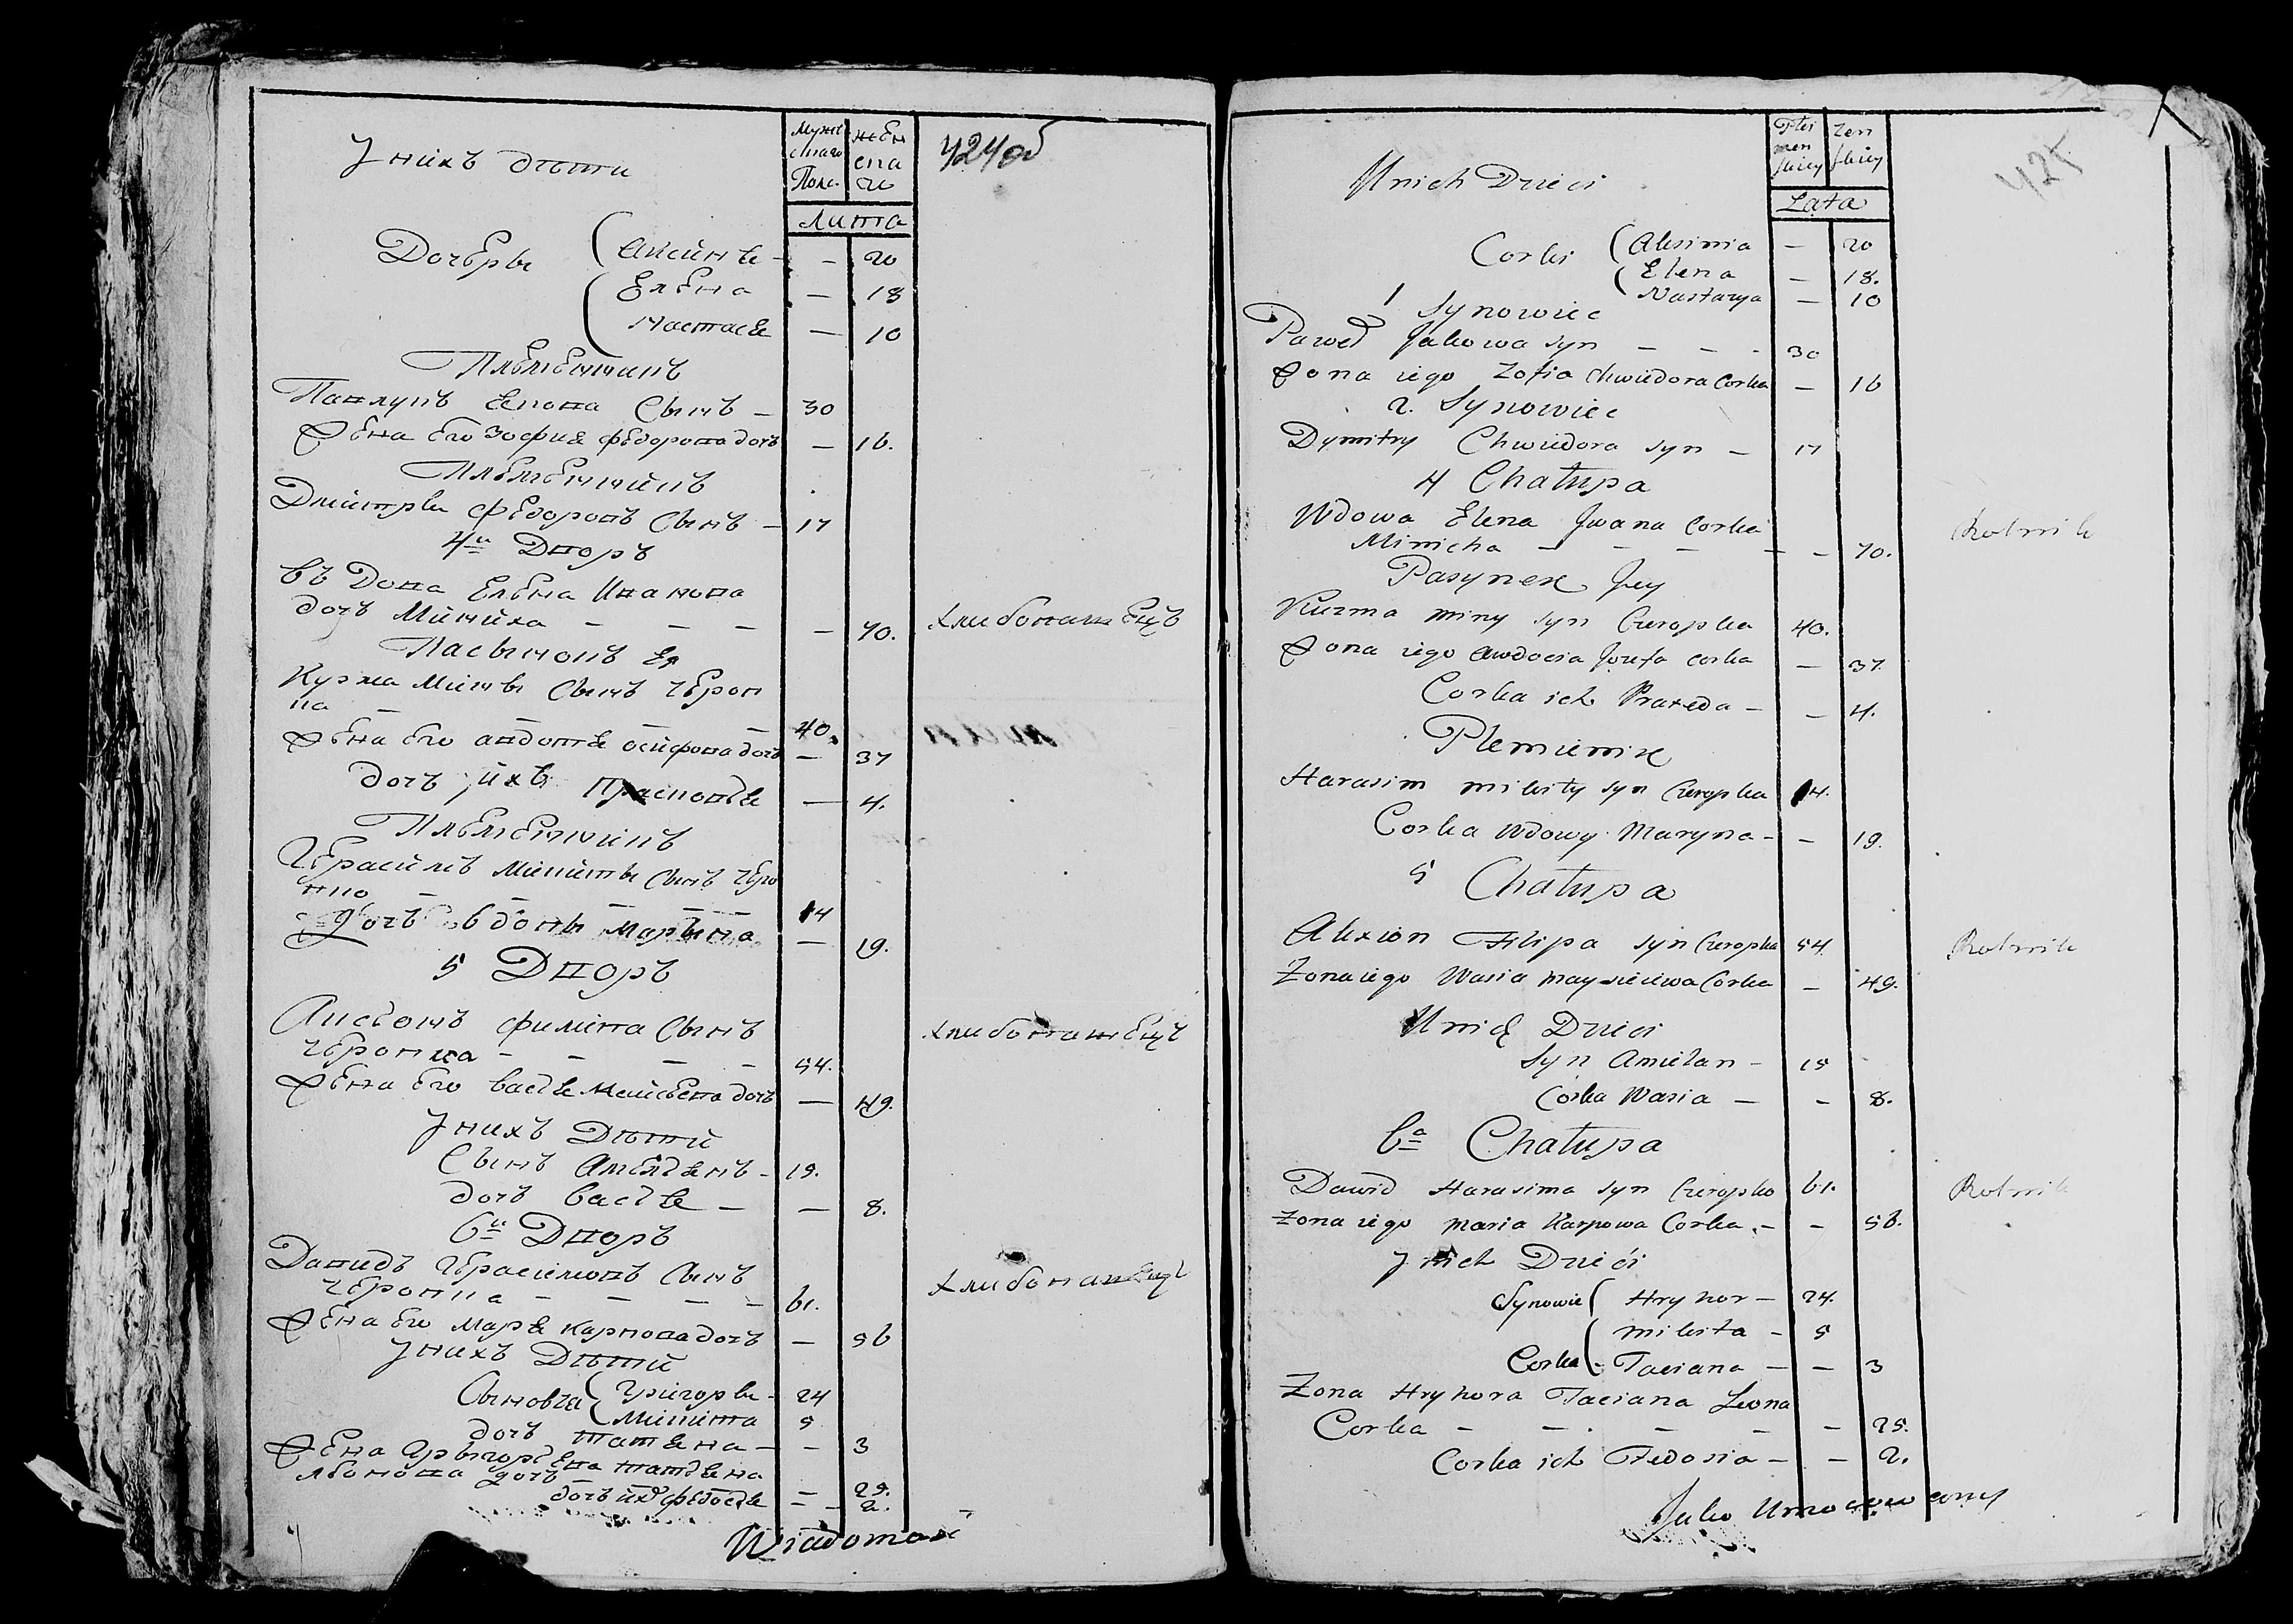 У нихъ дѣти
Муже скаго Полу
женскаго
424об
Лита
Дочеры ( Аксинья - — 20
( Елена — 18
( Настасья — 10
Племенникъ
Павлукъ Якова Сынъ — 30
Жена Его Зофия Федорова дочь — 16.
Племенникъ
Дмитры Федоровъ Сынъ — 17
4й Дворъ
Вдова Елена Иванова
дочъ Миниха — — — — 70. хлибопашецъ
Пасынокъ Ея
Кузма Мины Сынъ Череп
ка — — — 40.
Жена Его Авдотья Осифова дочъ — 37
дочъ ихъ Прасковья — 4.
Племенникъ
Герасимъ Микиты Сынъ Чере
пко — — — — 14
дочъ вдовы Марына — 19.
5 Дворъ
Аксеонъ Филипа Сынъ хлибопашецъ
Черепка — — — — 54.
Жена Его Васья Мойсеева дочъ — 49.
У нихъ Дѣти
Сынъ Амелянъ - 15.
дочъ Васья — — 8.
6й Дворъ
Давидъ Герасимовъ Сынъ хлибопашецъ
Черепка — — — — 61.
Жена Его Марья Карпова дочъ — 56
У нихъ Дѣти
Сыновья ( Григоры - 24
( Микита 5
дочъ Татьяна — — 3
Жена Грыгорьева Татьяна
Леонова дочъ — — 25.
дочъ ихъ Федосья — — 2.
Wiadomość
U nich Dzieci
Płci men skiey
żen skiey
425
Lata
Corki ( Aksimia — 20
( Elena — 18.
Nastazya — 10
1 Synowiec
Paweł Jakowa syn — — - 30
Żona iego Zofia Chwiedora Corka — 16
2. Synowiec
Dymitry Chwiedora syn — 17
4 Chałupa
Wdowa Elena Jwana Corka Rolnik
Minicha — — — — — 70.
Pasynek Jey
Kuzma Miny syn Czerepka 40.
Żona iego Awdocia Jozefa corka — 37.
Corka ich Praxeda — — 4.
Plemiennik
Harasim Mikity syn Czerepka 14.
Corka Wdowy Maryna — — 19.
5 Chałupa
Alexion Filipa syn Czerepka 54. Rolnik
Żona iego Wasia Maysieiewa Corka — 49.
U nich Dzieci
Syn Amielan — 15
Corka Wasia — — 8.
6a Chałupa
Dawid Harasima syn Czerepko 61. Rolnik
Żona iego Maria Karpowa Corka. — — 56.
U nich Dzieci
Synowie ( Hryhor — 24.
( Mikita — 5
Corka ( - Taciana — — 3
Żona Hryhora Taciana Leona
Corka — — . — — — — 25.
Corka ich Fedosia — — 2.
Jako Umocowany